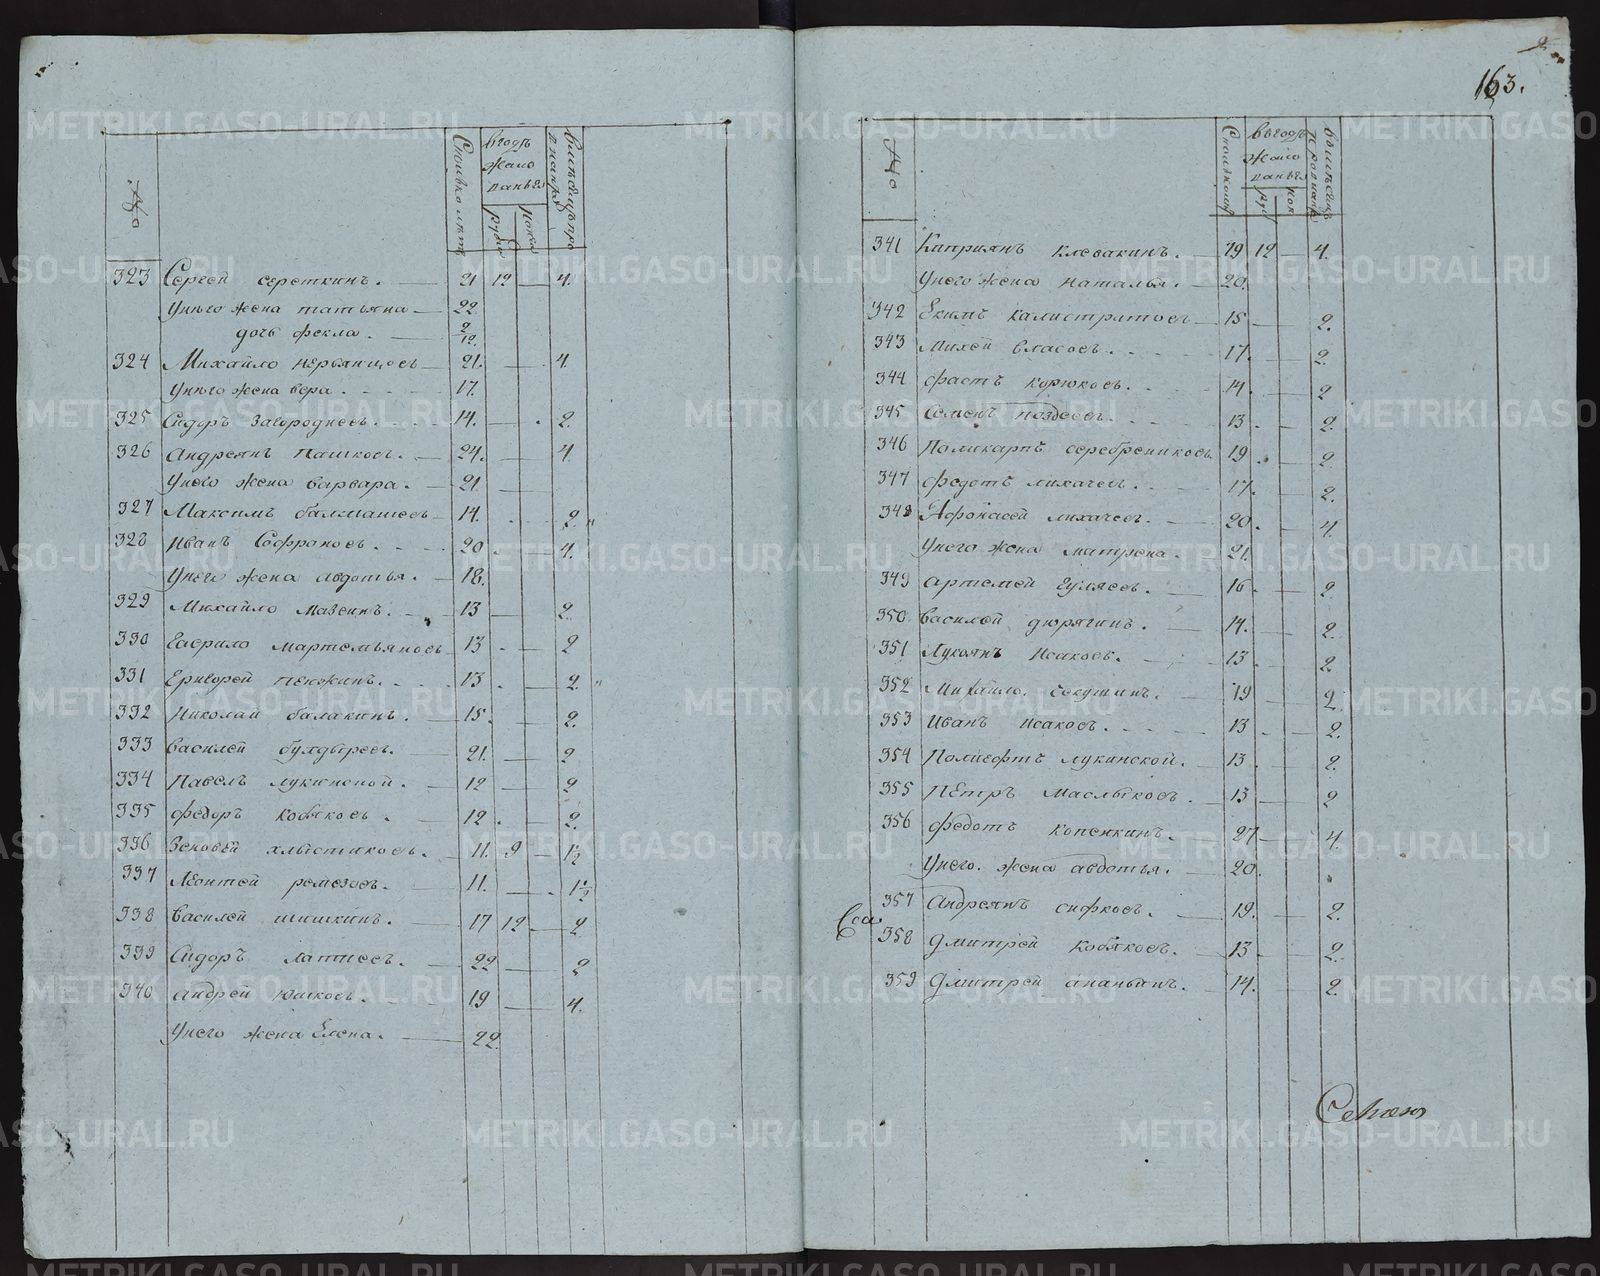 163.
№
Сколько летъ
в годъ жалованья
рубли
323 Сергей сереткинъ. 21 12 4.
У нього жена татьяна 22
дочь фекла. 2/12.
324 Михайло 21. 4
У нього жена вера 17.
325 Сидоръ Загородневъ. 14. 2.
326 Андреянъ Пашковъ. 24. 4
У него жена варвара. 21.
327 Максимъ балмашевъ 14. 2.
328 Иванъ Софроновъ. 20 4.
У него жена авдотья. 18.
329 Михайло мазеинъ. 13 2.
330 Гаврило мартемьяновъ 13 2
331 Григорей пенжинъ. 13 2.
332 Николай балакинъ. 15 2.
333 Василей булдыревъ. 21. 2
334 Павелъ лукинской. 12 2
335 федоръ кобяковъ. 12. 2.
336 Зеновей хлыстиковъ. 11. 9 1½
337 Леонтей ремезовъ. 11. 1½
338 Василей шишкинъ. 17 12 2
339 Сидоръ латневъ. 22 2
340 андрей юшковъ. 19 4.
У него жена Елена. 22.
№
в годъ жалованья
руб коп
341 Киприянъ клевакинъ. 29 12 4.
У него жена наталья. 20.
342 Екимъ калистратовъ 15 2.
343 Михей власовъ. 17. 2.
344 фастъ корюковъ. 14. 2
345 Семенъ поздеевъ. 13 2.
346 Поликарпъ серебрениковъ 19 2
347 федотъ лихачевъ. 17. 2.
348 Афонасей лихачевъ. 20. 4.
У него жена матрена. 21.
349 артемей гуляевъ. 16 2
350 василей дюрягинъ. 14. 2
351 Лукоянъ Исаковъ. 13 2
352 Михайло. секушинъ. 19 2
353 Иванъ исаковъ. 13 2.
354 Полиефтъ лукинской. 13. 2.
355 Петръ Маслыковъ. 13 2
356 федотъ копенкинъ. 27 4.
У него. жена авдотья. 20.
357 Андреянъ сифковъ. 19. 2.
358 Дмитрей кобяковъ. 13 2.
359 Дмитрей ананьинъ. 14. 2.